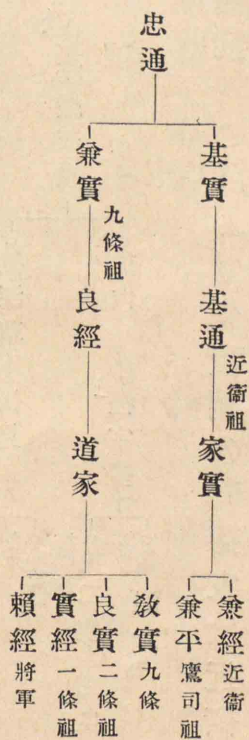 忠通
基實
基通
近衞祖
家實
兼經 近衞
兼平 鷹司祖
兼實
九條祖
良經
道家
敎實 九條
良實 二條祖
實經 一條祖
賴經 將軍